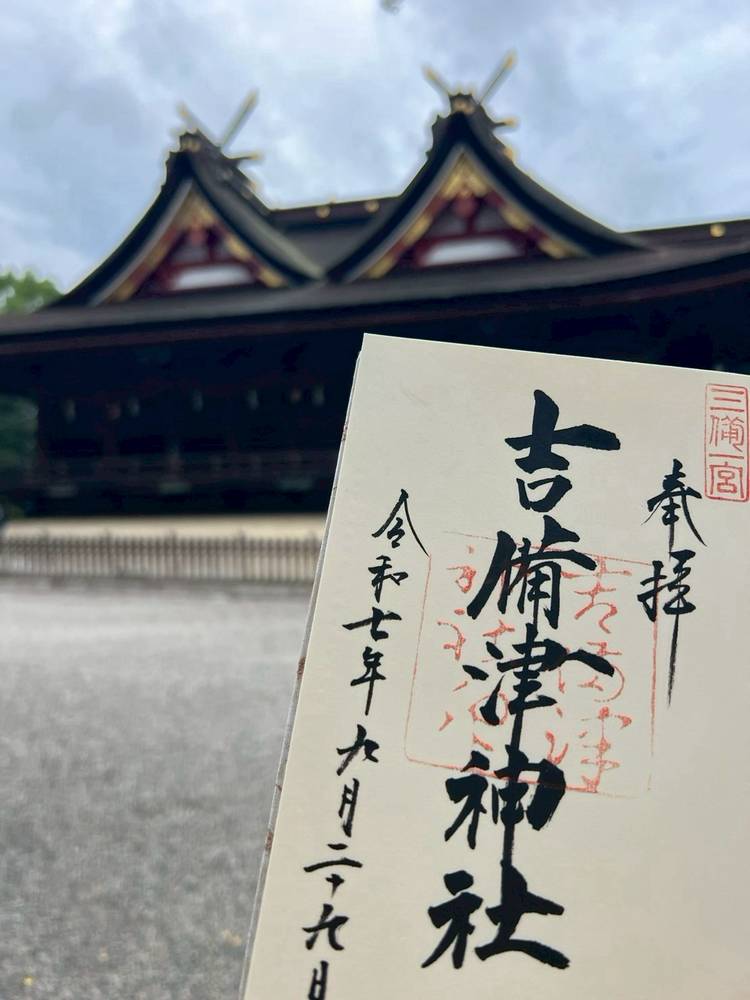 三備一宮
奉拝
吉備津神社
令和七年九月二十九日